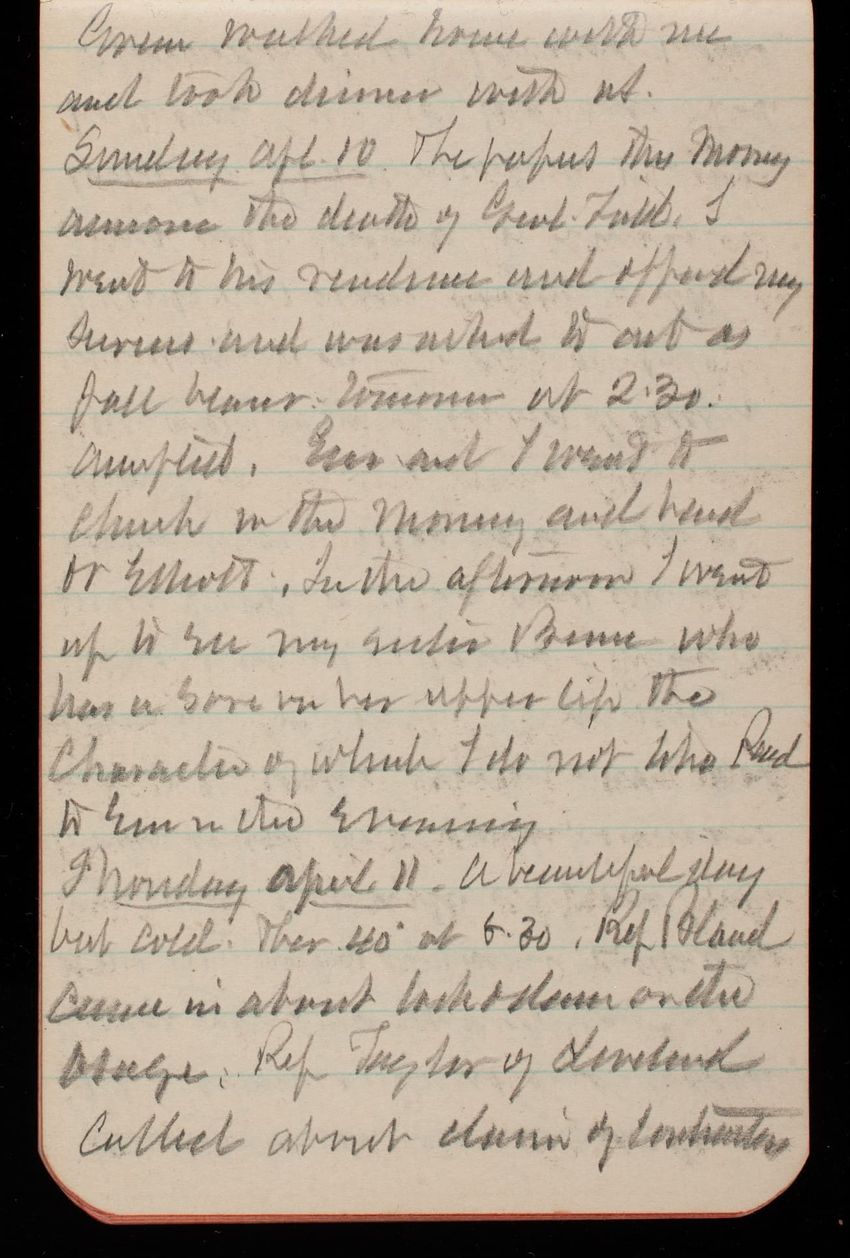 walked home with me
and took dinner with us.
Sunday Apl. 10 The papers this Morning
announce the death of Genl. Field. I
went to his residence and offered my
services and was asked to act as
pall bearer tomorrow at 2.30.
accepted. Em and I went to
church in the Morning and heard
Dr Elliott. In the afternoon I went
up to see my sister who
has a sore on her upper lip the
character of which I do not like Read
to Em in the Evening
Monday April 11. A beautiful day
but cold. Ther 40° at 6.30. Rep Bland
came in about lock & dam on the
Osage. Rep Taylor of
called about claim of contractors